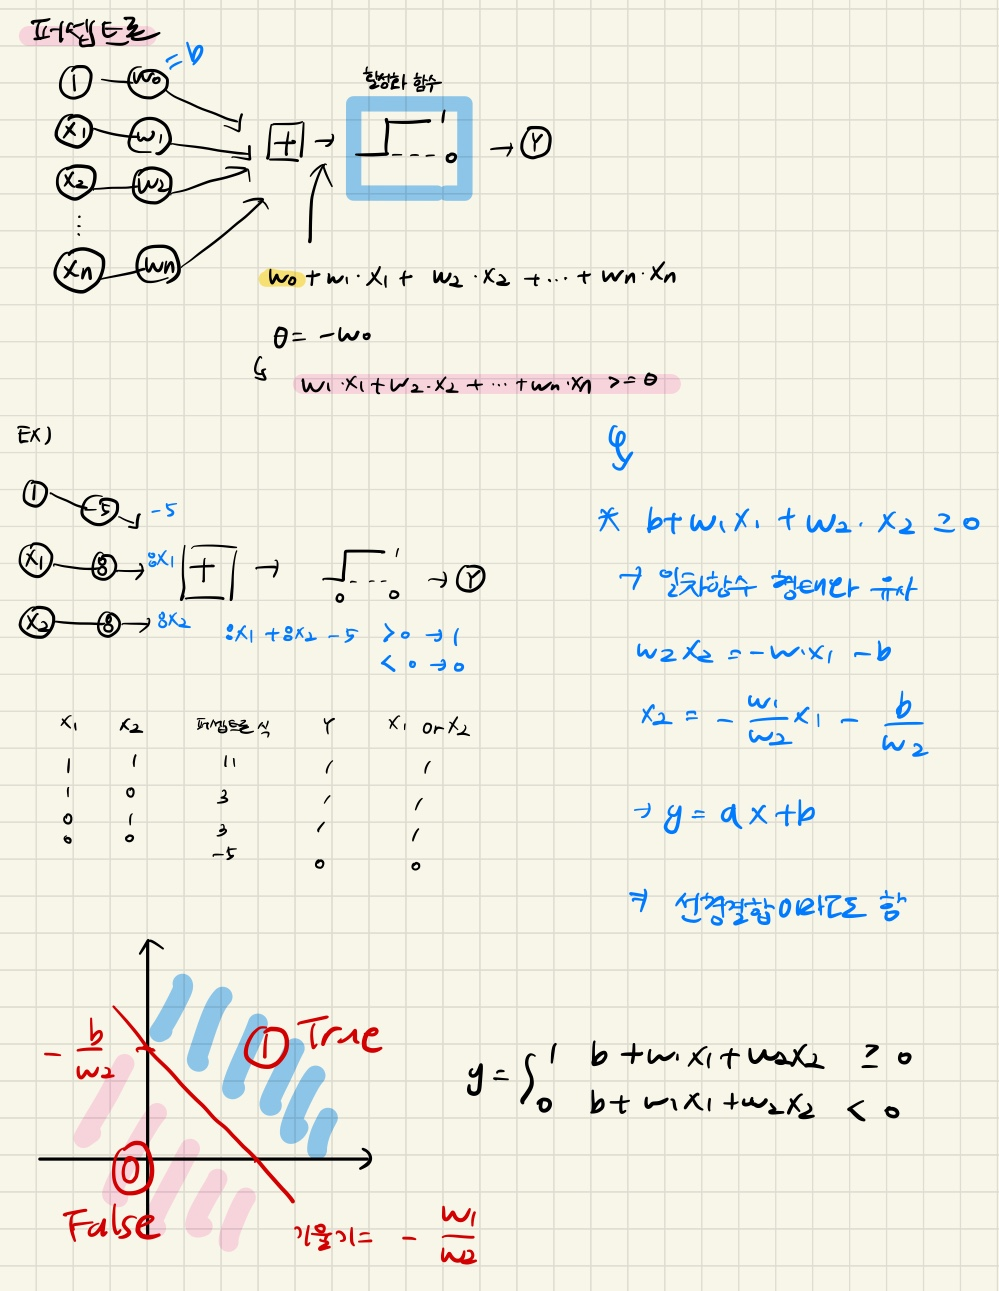 퍼셉트론
1 w0 = b
활성화 함수
x1 w1
+ → 1 0 → Y
x2 w2
⋮
xn wn
w0 + w1·x1 + w2·x2 + ... + wn·xn
θ = -w0
w1·x1 + w2·x2 + ... + wn·xn >= θ
EX)
1 -5 -5
x1 8 8x1
+ → 0 1 0 → Y
x2 8 8x2
8x1 + 8x2 - 5 > 0 → 1
< 0 → 0
x1 x2 퍼셉트론 식 Y x1 or x2
1 1 11 1 1
1 0 3 1 1
0 1 3 1 1
0 0 -5 0 0
* b + w1x1 + w2·x2 ≥ 0
→ 일차함수 형태와 유사
w2x2 = -w1x1 - b
x2 = - w1/w2 x1 - b/w2
→ y = ax + b
선형결합이라고도 함
- b/w2
1 True
0
False
기울기 = - w1/w2
y = { 1 b + w1x1 + w2x2 ≥ 0
0 b + w1x1 + w2x2 < 0